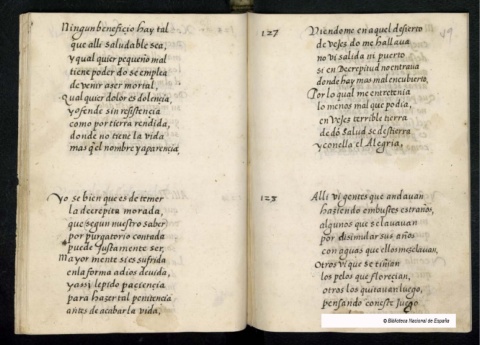 Ningun beneficio hay tal
que alli saludable sea,
y qual quier pequeño mal
tiene poder do se emplea
de venir a ser mortal,
Qual quier dolor es dolencia,
y ofende sin resistencia
como por tierra rendida,
donde no tiene la vida
mas q̃ el nombre y aparencia
Yo se bien que es de temer
la decrepita morada,
que segun nuestro saber
por purgatorio contada
puede justamente ser,
Mayor mente si es sufrida
en la forma a dios devida,
y assi le pido paciencia
para hazer tal penitencia
antes de acabar la vida,
49
127
Viendome en aquel desierto
de vejes do me hallava
no vi salida ni puerto
si en Decrepitud no entrava
donde hay mas mal encubierto,
Por lo qual me entretenia
lo menos mal que podia,
en vejes terrible tierra
de dó Salud se destierra
y con ella el Alegria,
128
Alli vi gentes que andavan
haziendo embustes estraños,
algunos que se lavavan
por disimular sus años
con aguas que ellos mesclavan,
Otros vi que se tiñian
los pelos que florecian,
otros los quitavan luego,
pensando con este juego
© Biblioteca Nacional de España